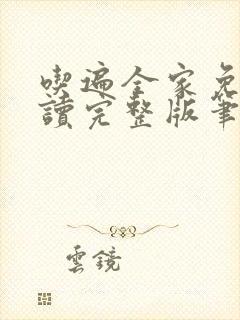 喫遍全家免
讀完整版筆
雲鏡